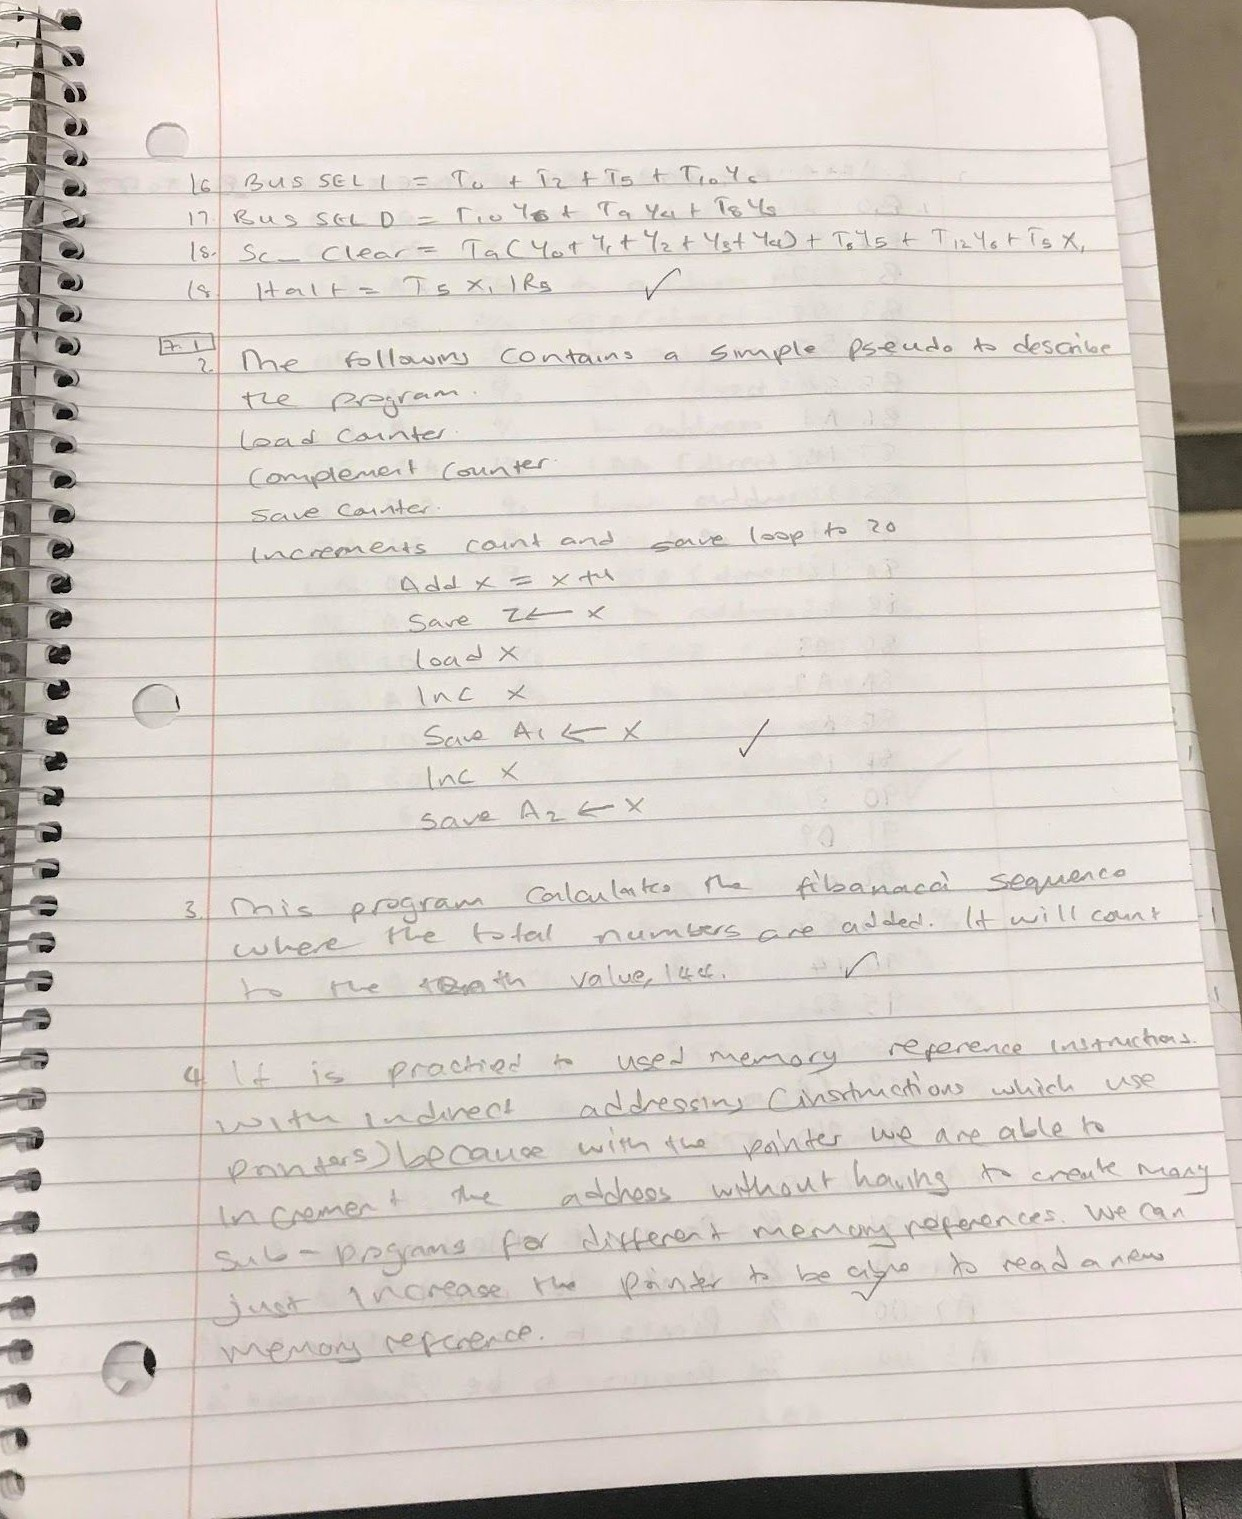 16 BUS SEL 1 = T0 + T2 + T5 + T10 Y6
17 BUS SEL 0 = T10 Y6 + T9 Y4 + T8 Y5
18. SC_ Clear = T9 (Y0 + Y1 + Y2 + Y3 + Y4) + T8 Y5 + T12 Y6 + T5 X1
18 Halt = T5 X1 IR5 ✓
7.1
2. The following contains a simple pseudo to describe
the program.
Load Counter.
Complement Counter.
Save Counter.
Increments count and save loop to 20
Add X = X + Y
Save Z ← X
load X
Inc X
Save A1 ← X ✓
Inc X
Save A2 ← X
3. This program calculates the fibanacci sequence
where the total numbers are added. It will count
to the value, 144. ✓
4. It is practied to used memory reference instructions.
with indirect addressing (instructions which use
pointers) because with the pointer we are able to
increment the address without having to create many
sub-programs for different memory references. We can
just increase the pointer to be able to read a new
memory reference. ✓